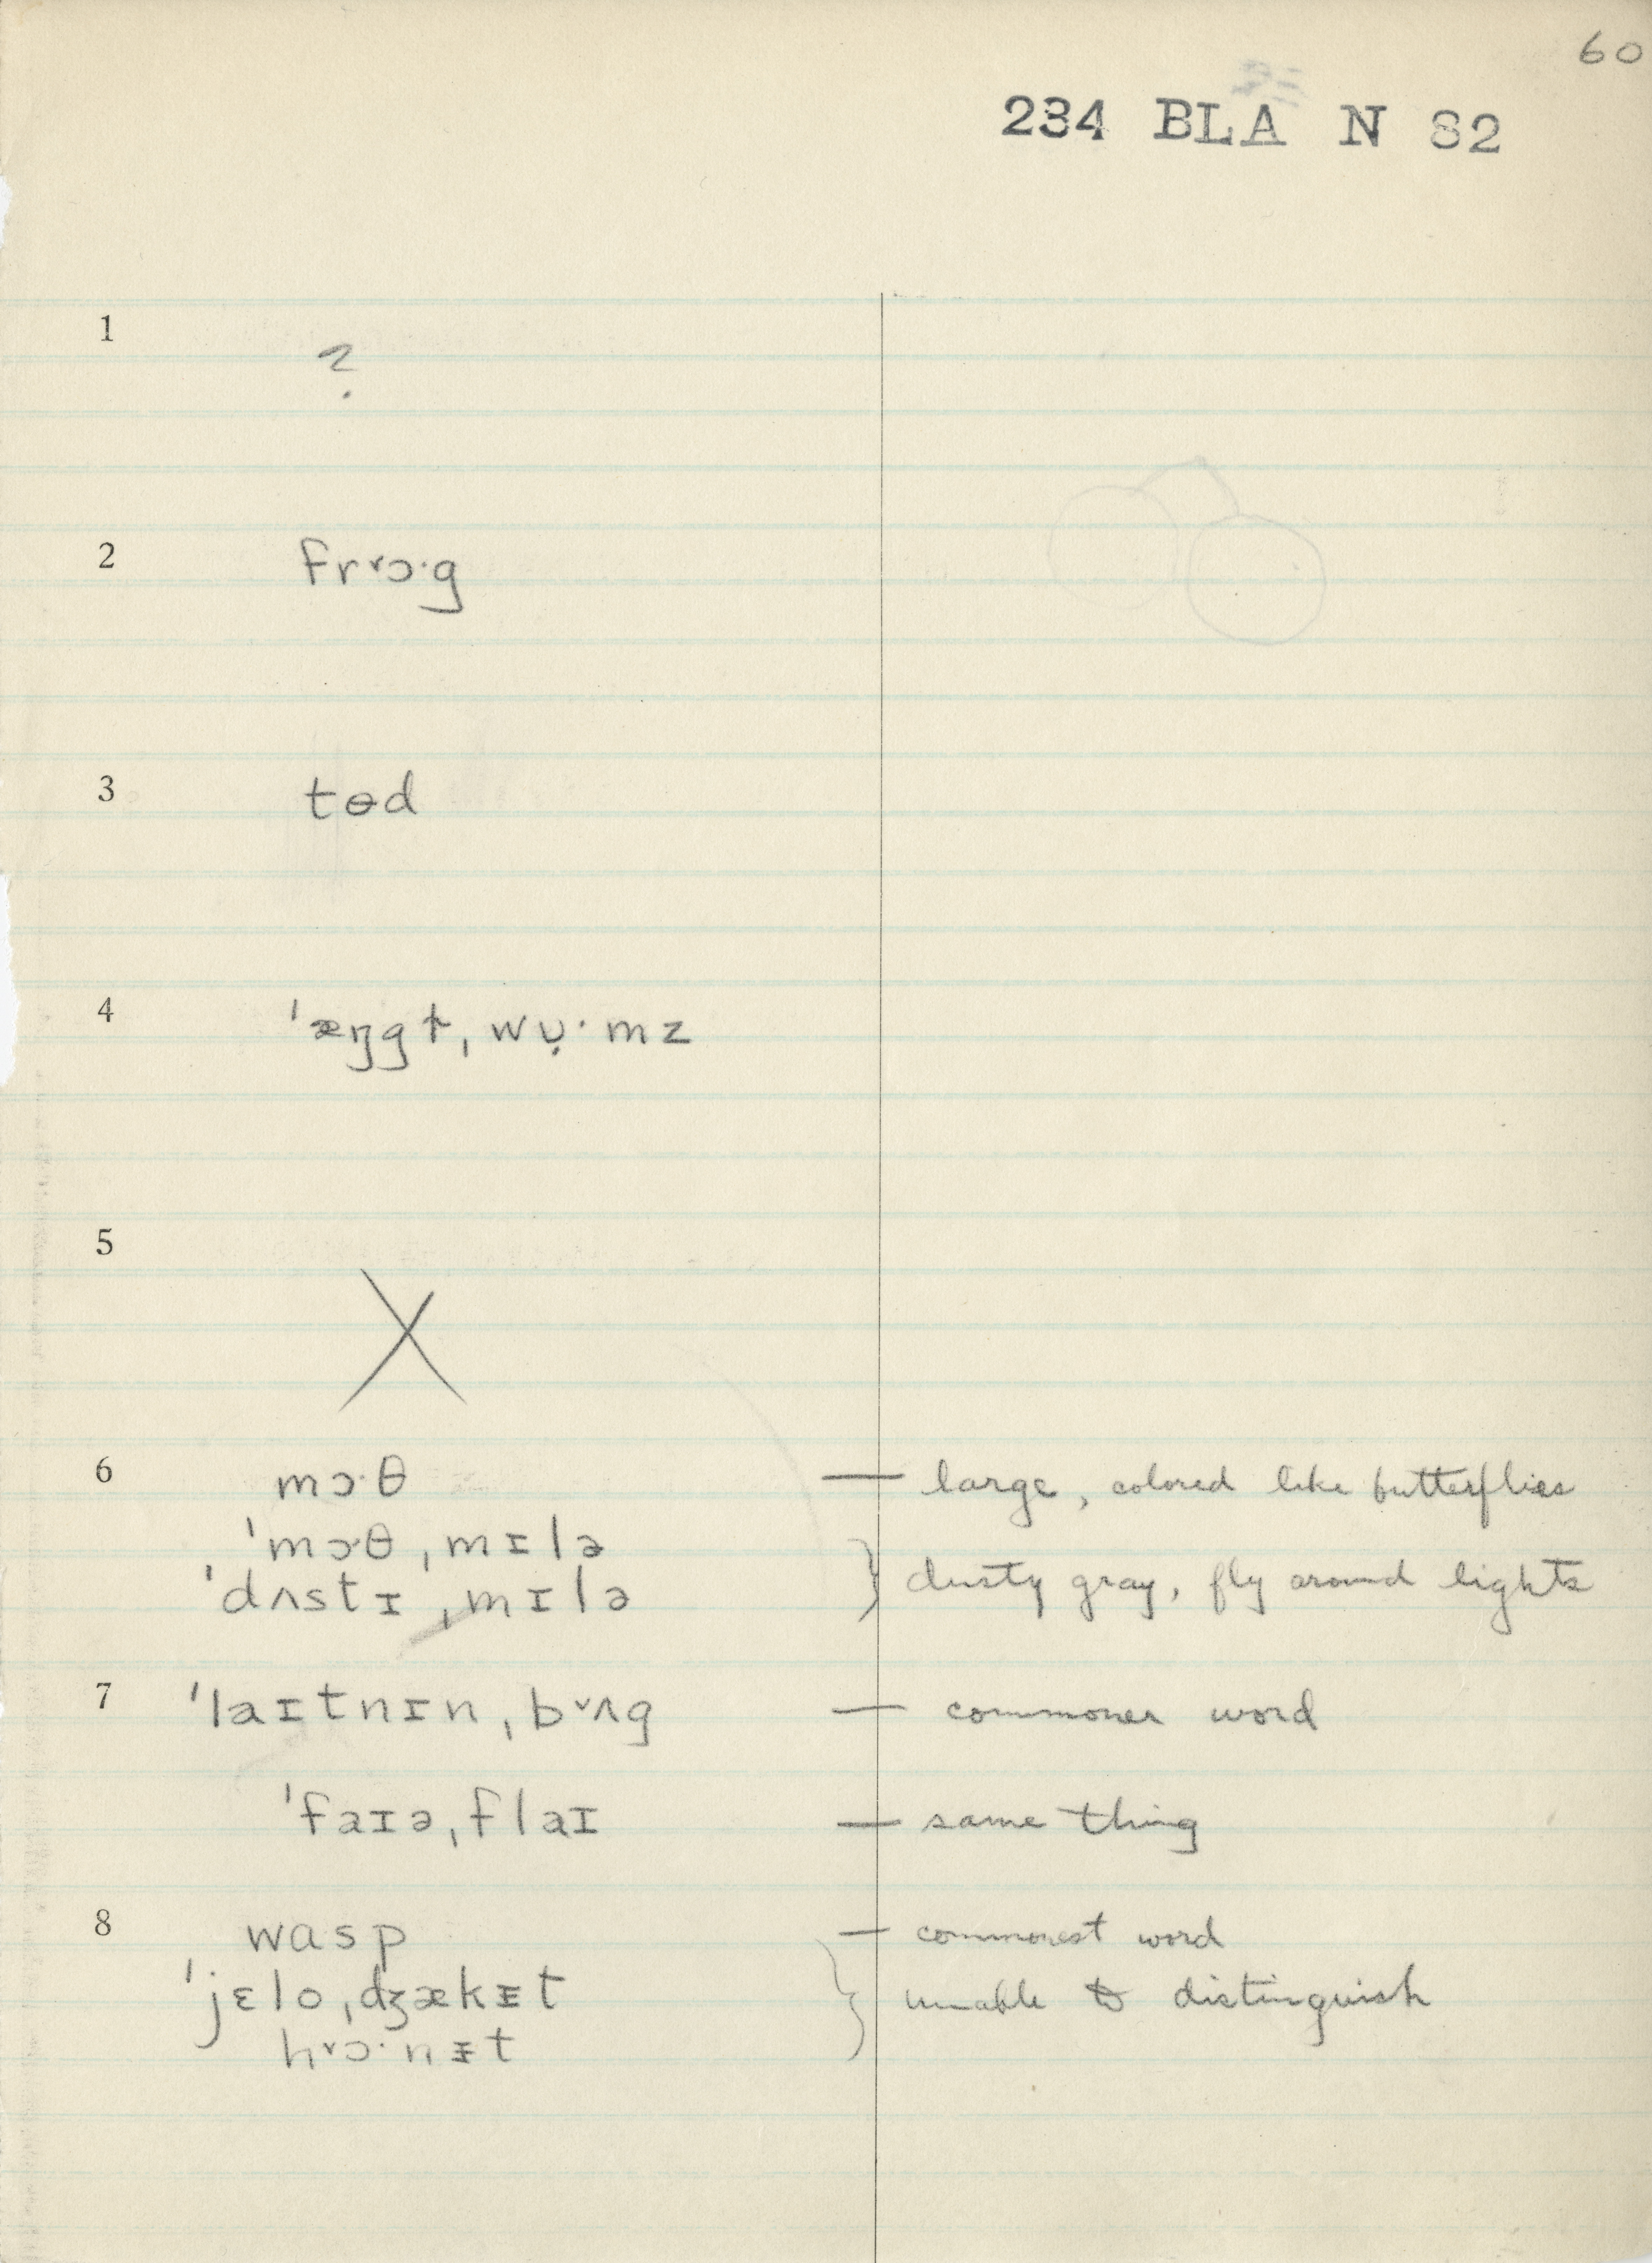 60
234 BLA N 82
1
?
2 frᵛɔ·g
3 tɵd
4 ˈæŋgɫ̩, wụ·mz
5
X
6 mɔ·θ — large, colored like butterflies
ˈmɔ·θˌmɪlə
ˈdʌstɪˌmɪlə } dusty gray, fly around lights
7 ˈlaɪtnɪnˌbᵛʌg — commoner word
ˈfaɪəˌflaɪ — same thing
8 wasp — commonest word
ˈjɛloˌdʒækᵻt } unable to distinguish
hᵛɔ·nᵻt